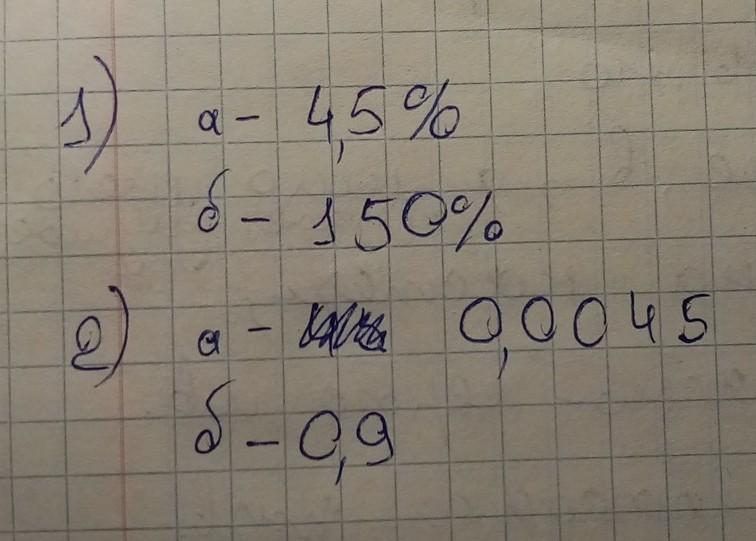 1) а - 4,5%
б - 150%
2) а - 0,0045
б - 0,9